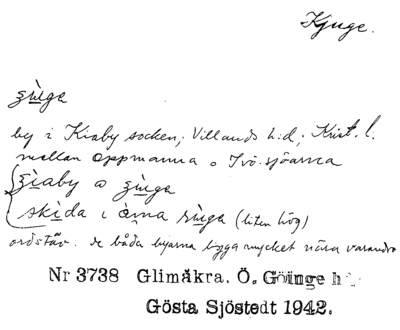 Kjuge.
by i Kiaby socken; Villands h.d; Krist. l.
mellan Oppmanna o Ivö-sjöarna
skida i (liten hög)
ordstäv. de båda byarna bygga mycket nära varandra
Nr 3738 Glimåkra. Ö. Göinge h
Gösta Sjöstedt 1942.